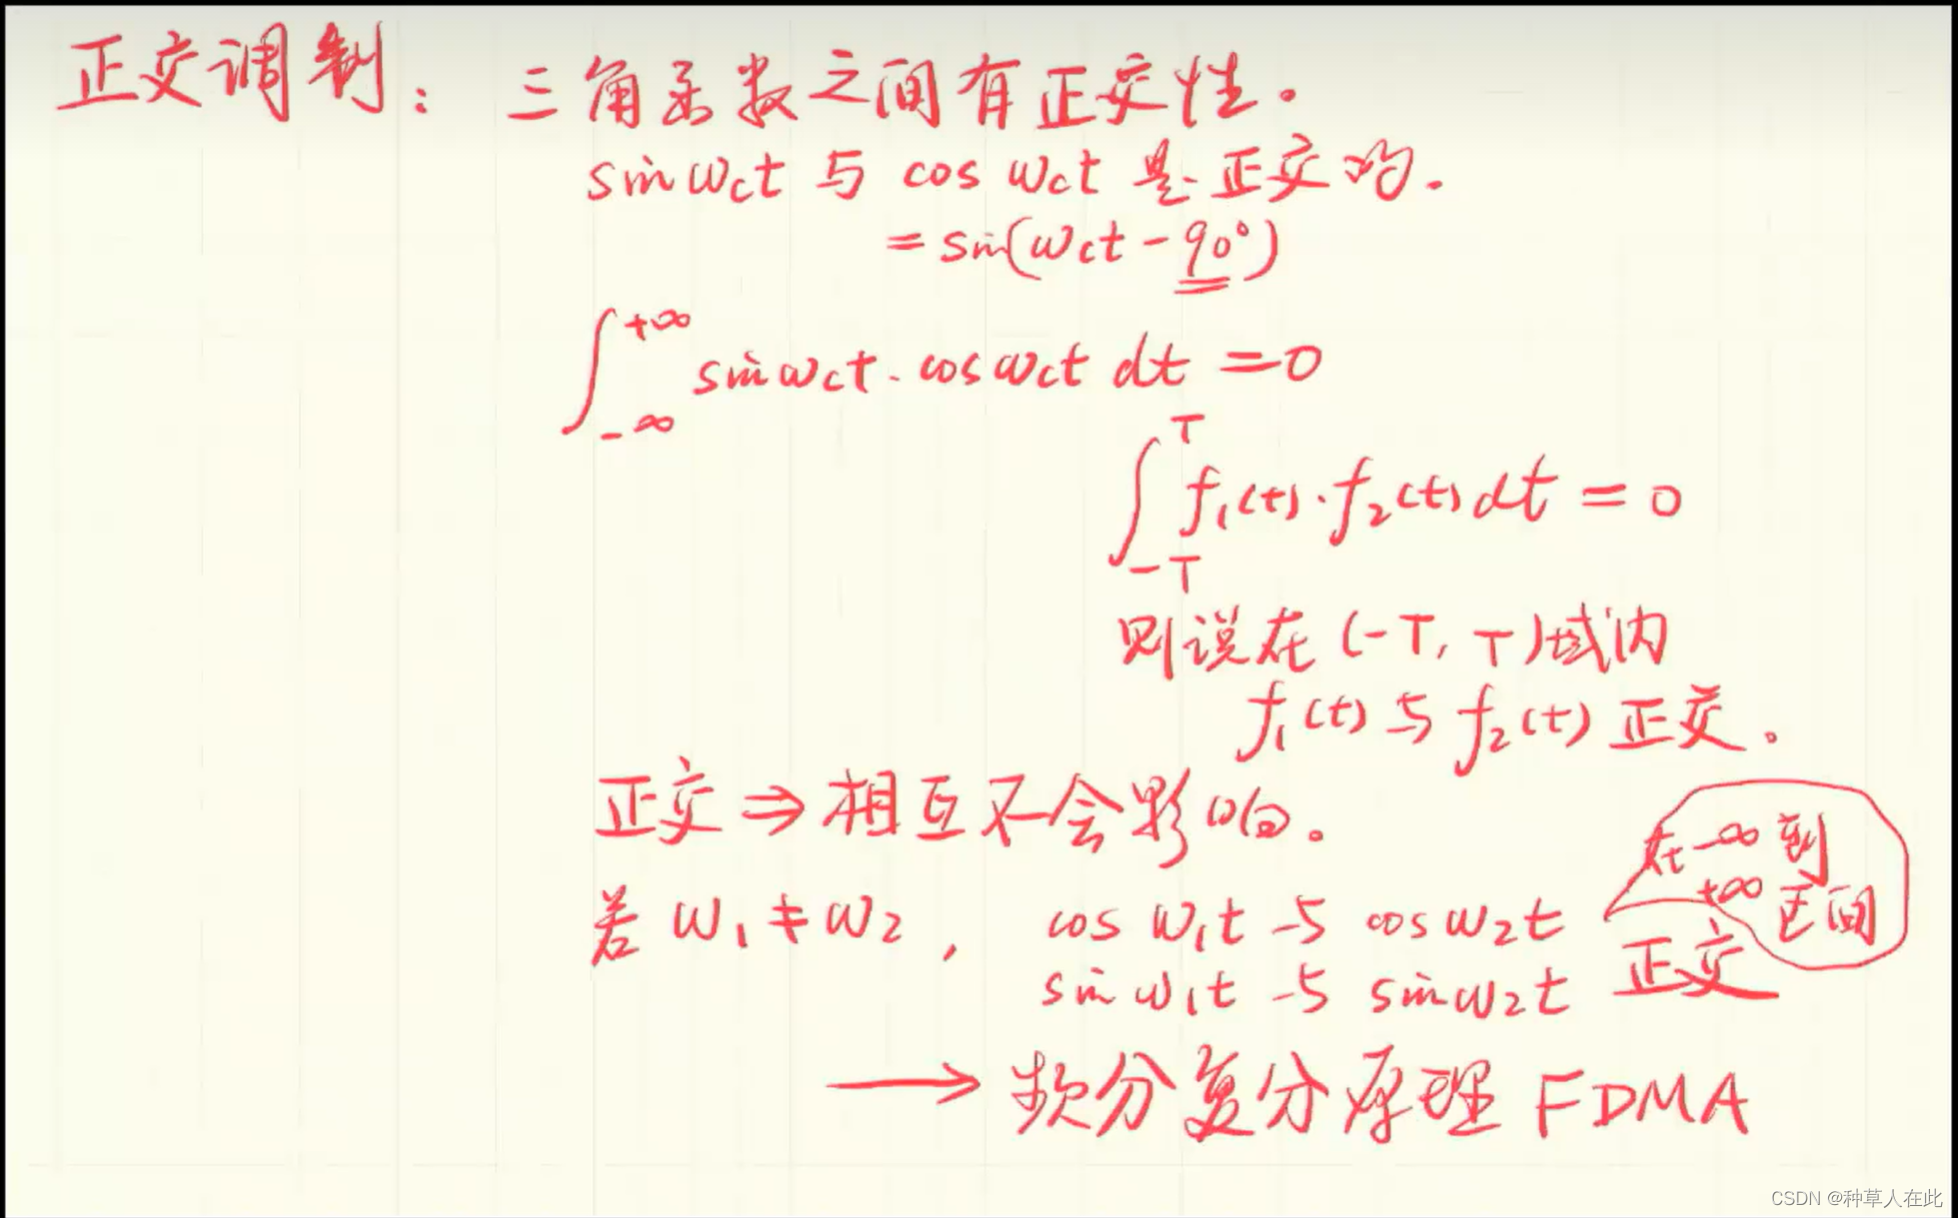 正交调制：三角函数之间有正交性。
sinω_ct 与 cosω_ct 是正交的.
=sin(ω_ct-90°)
∫_{-∞}^{+∞} sinω_ct·cosω_ct dt =0
∫_{-T}^{T} f₁(t)·f₂(t)dt=0
则说在(-T,T)域内
f₁(t)与f₂(t)正交。
正交⇒相互不会影响。
若 ω₁≠ω₂, cosω₁t与cosω₂t
sinω₁t与sinω₂t 正交
在-∞到
+∞区间
→频分复分原理 FDMA
CSDN @种草人在此